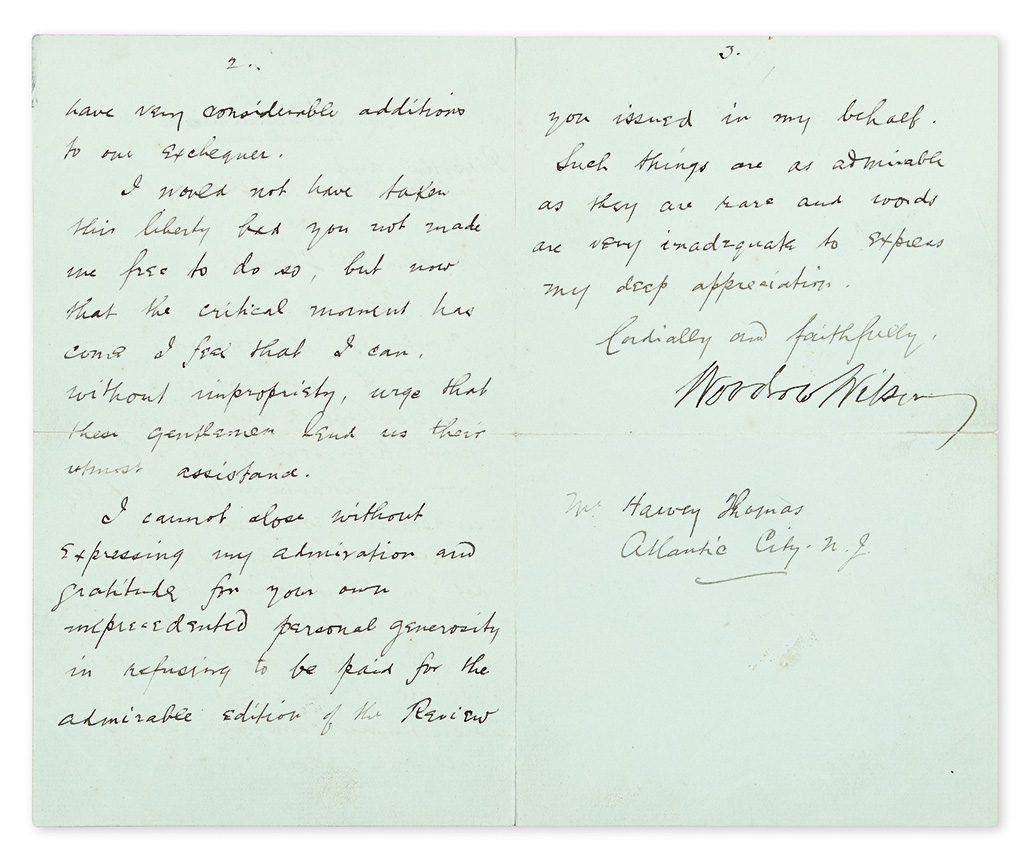 2.
have very considerable additions
to our Exchequer.
I would not have taken
this liberty had you not made
me free to do so, but now
that the critical moment has
come I feel that I can,
without impropriety, urge that
these gentlemen lend us their
utmost assistance.
I cannot close without
expressing my admiration and
gratitude for your own
unprecedented personal generosity
in refusing to be paid for the
admirable edition of the Review
3.
you issued in my behalf.
Such things are as admirable
as they are rare and words
are very inadequate to express
my deep appreciation.
Cordially and faithfully,
Woodrow Wilson
Mr Harvey Thomas
Atlantic City - N. J.